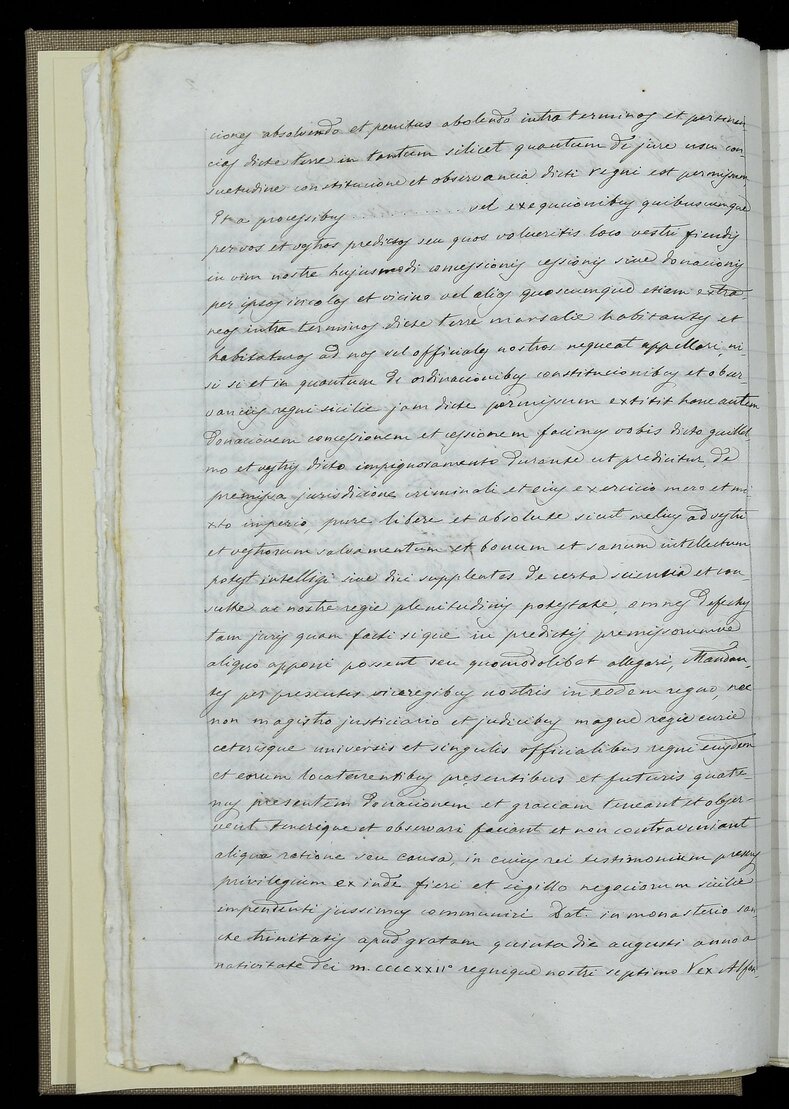 ciones absolvendo et penitus abolendo intra terminos et pertinen-
cias dicte terre in tantum silicet quantum de jure usu con-
suetudine constitucione et observancia dicti regni est permissum
Et a processibus .............. vel exequcionibus quibuscumque
per vos et vestros predictos seu quos volueritis loco vestri fiendis
in vim nostre hujusmodi concessionis cessionis sive donacionis
per ipsos incolas et vicino vel alios quoscumque etiam extra-
neos intra terminos dicte terre marsalie habitantes et
habitaturos ad nos vel officiales nostros nequeat appellari, ni-
si si et in quantum de ordinacionibus constitucionibus et obser-
vanciis regni sicilie jam dicte permissum extitit hanc autem
Donacionem concessionem et cessionem facimus vobis dicto guillel-
mo et vestris dicto impignoramento durante ut predicitur, de
premissa jurisdicione criminali et eius exercicio mero et mi-
xto imperio, pure, libere et absolute sicut melius ad vestri
et vestrorum salvamentum et bonum et sanum intellectum
potest intelligi sive dici supplentes de certa sciencia et con-
sulte ac nostre regie plenitudinis potestate, omnes defectus
tam juris quam facti si qui in predictis premissorumve
aliquo apponi possent seu quomodolibet allegari, Mandan-
tes per presentes viceregibus nostris in eodem regno, nec
non magistro justiciario et judicibus magne regie curie
ceterisque universis et singulis officialibus regni eiusdem
et eorum locatenentibus presentibus et futuris quate-
nus presentem donacionem et graciam teneant et obser-
vent tenerique et observari faciant et non contraveniant
aliqua ratione seu causa, in cuius rei testimonium presens
privilegium exinde fieri et sigillo negociorum sicilie
impendenti jussimus communiri Dat. in monasterio san-
cte trinitatis apud gratam quinta die augusti anno a
nativitate dei m. ccccxxii° regnique nostri septimo Rex Alfon-